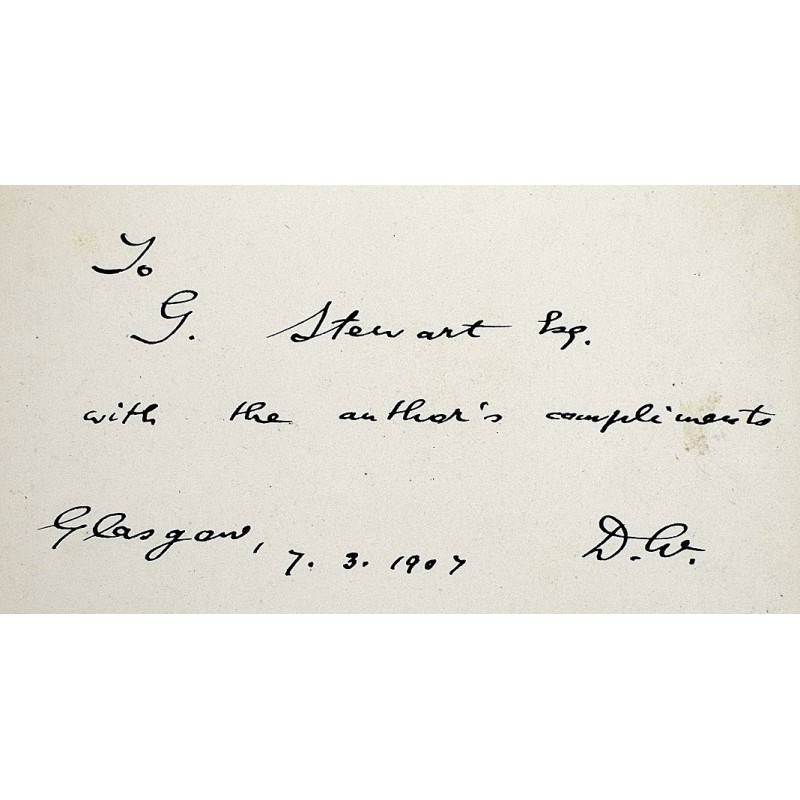 To
G. Stewart Esq.
with the author's compliments
Glasgow, 7. 3. 1907 D.W.